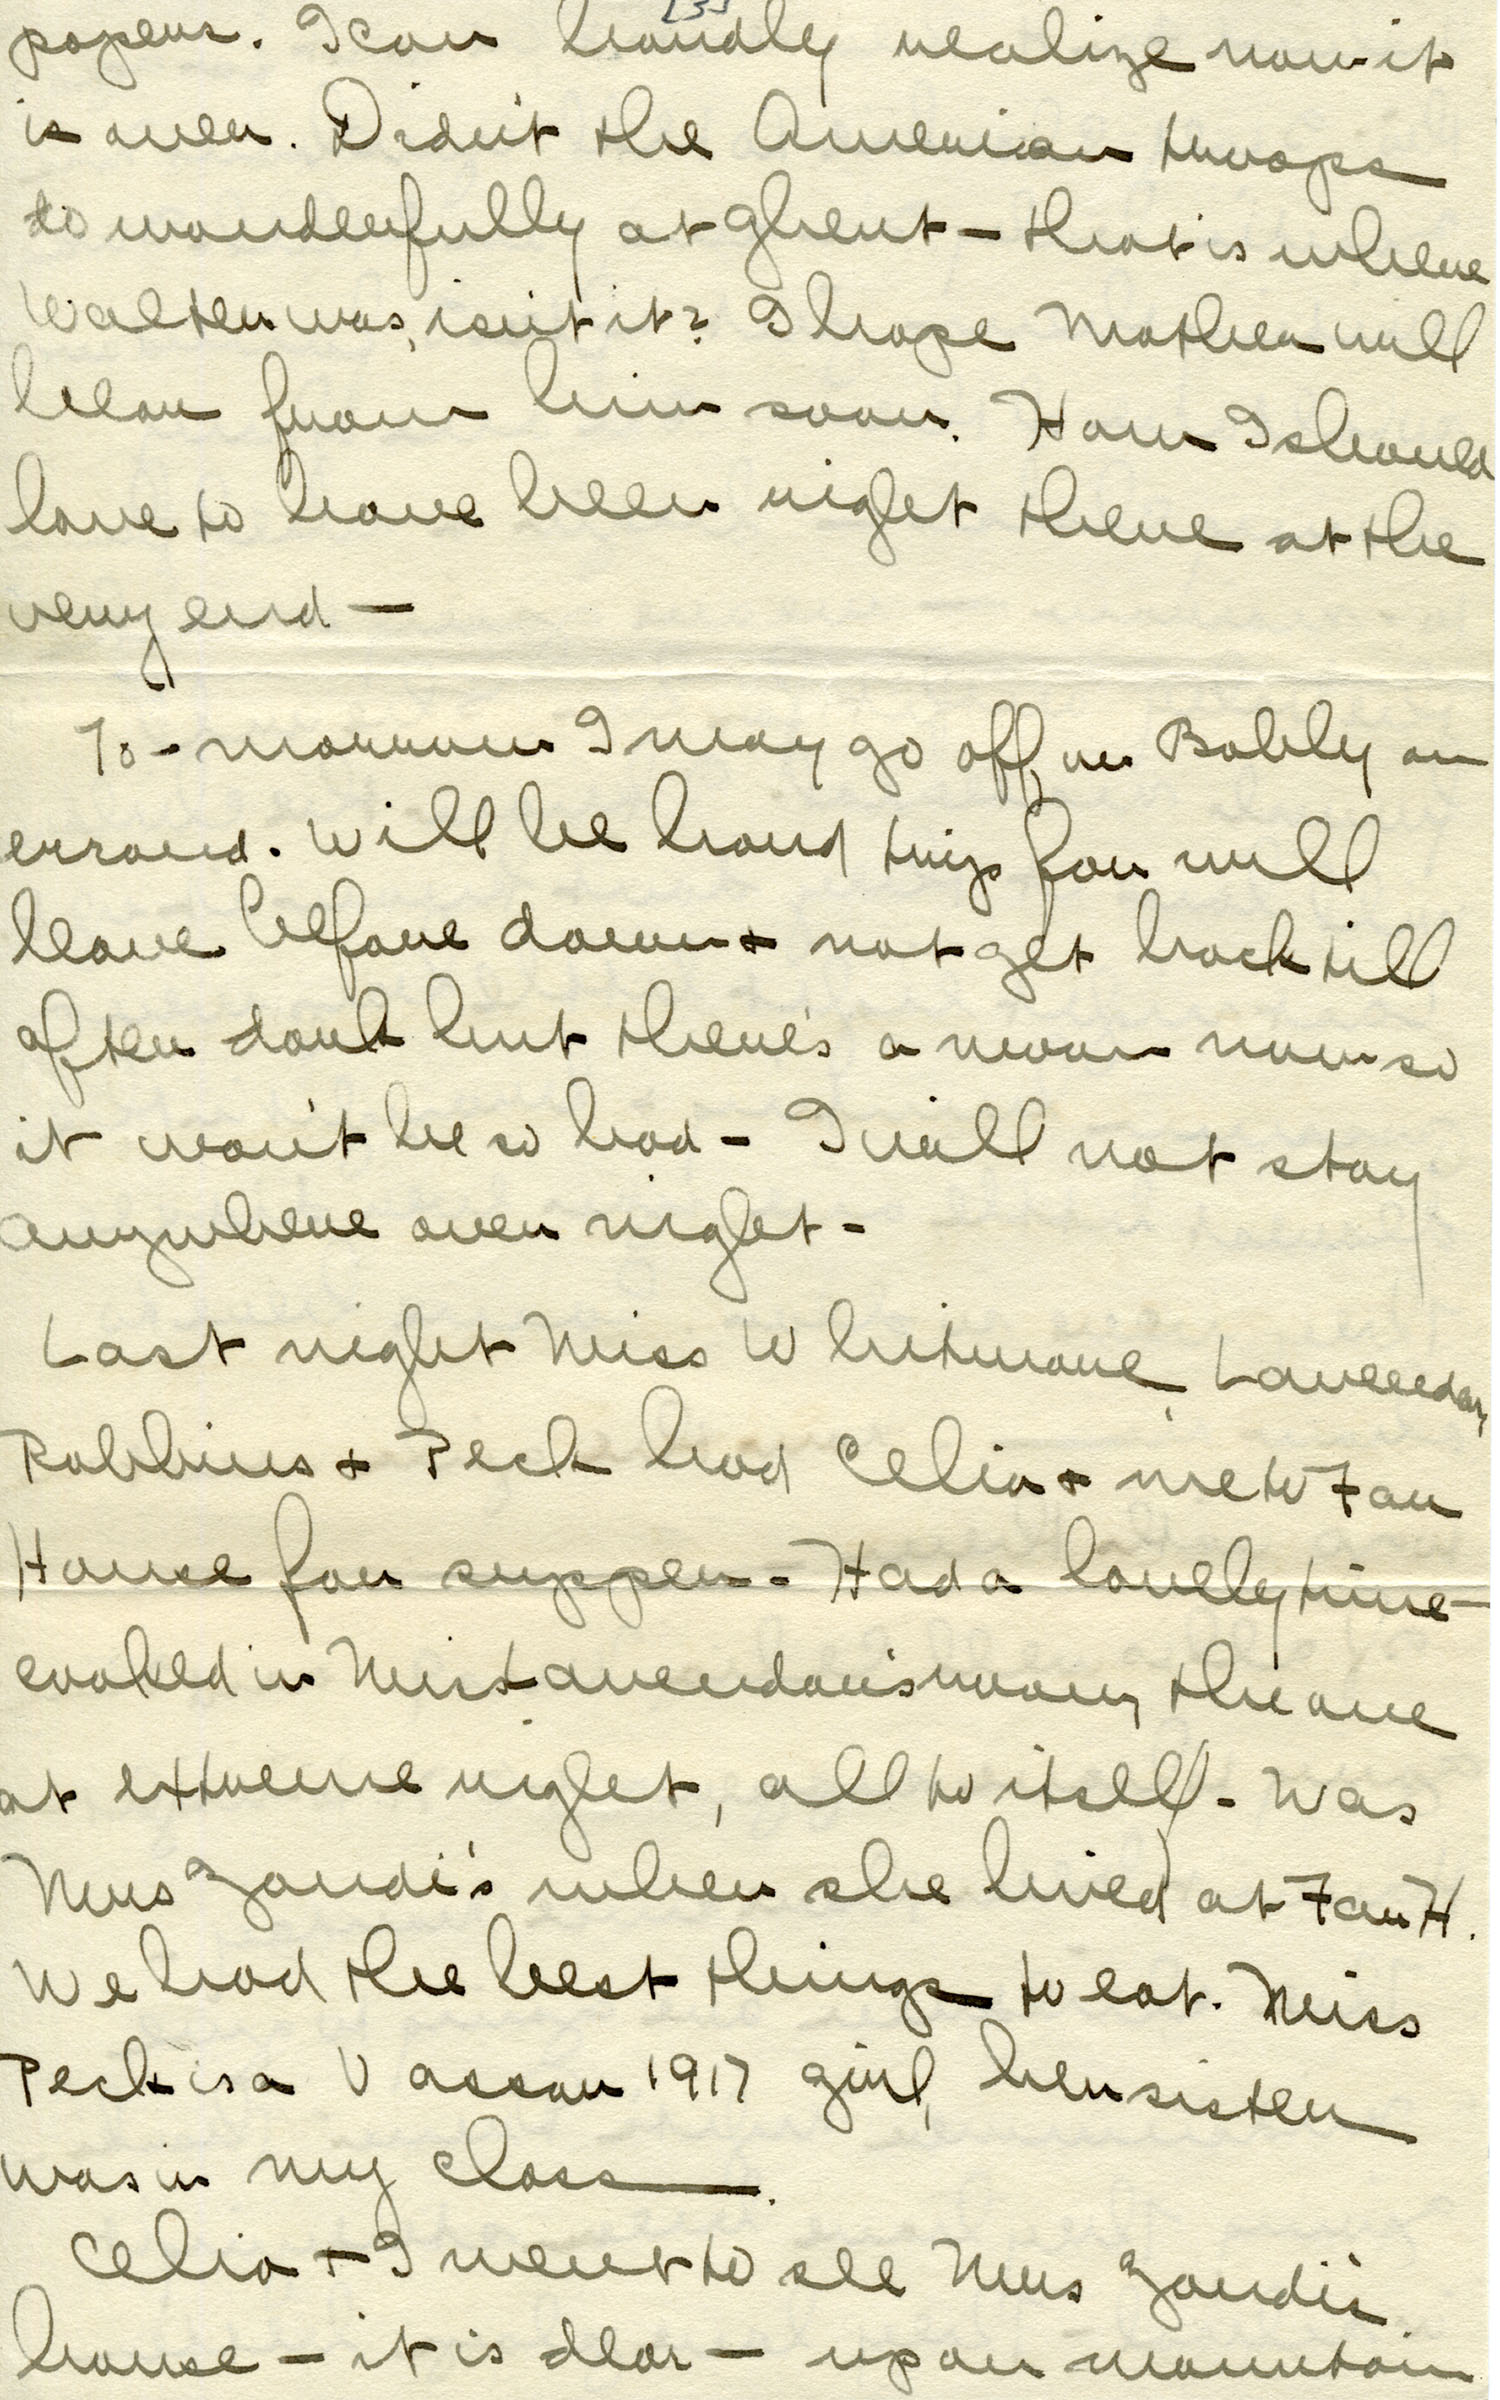 [3]
papers. I can hardly realize now it
is over. Didn't the American troops
do wonderfully at Ghent — that is where
Walter was, isn't it? I hope Mother will
hear from him soon. How I should
love to have been right there at the
very end —
To-morrow I may go off, on Bobby on
errand. Will be hard trip for will
leave before dawn + not get back till
after dark but there's a moon now so
it won't be so bad - I will not stay
anywhere over night -
Last night Miss Whitmore, Lavendar,
Robbins + Peck had Celia + me to Far
House for supper - Had a lovely time —
cooked in Miss Lavendar's room, the one
at extreme right, all to itself - Was
Mrs Zandi's when she lived at Far H.
We had the best things to eat. Miss
Peck is a Vassar 1917 girl, her sister
was in my class —.
Celia + I went to see Mrs Zandi's
house — it is dear — up on mountain